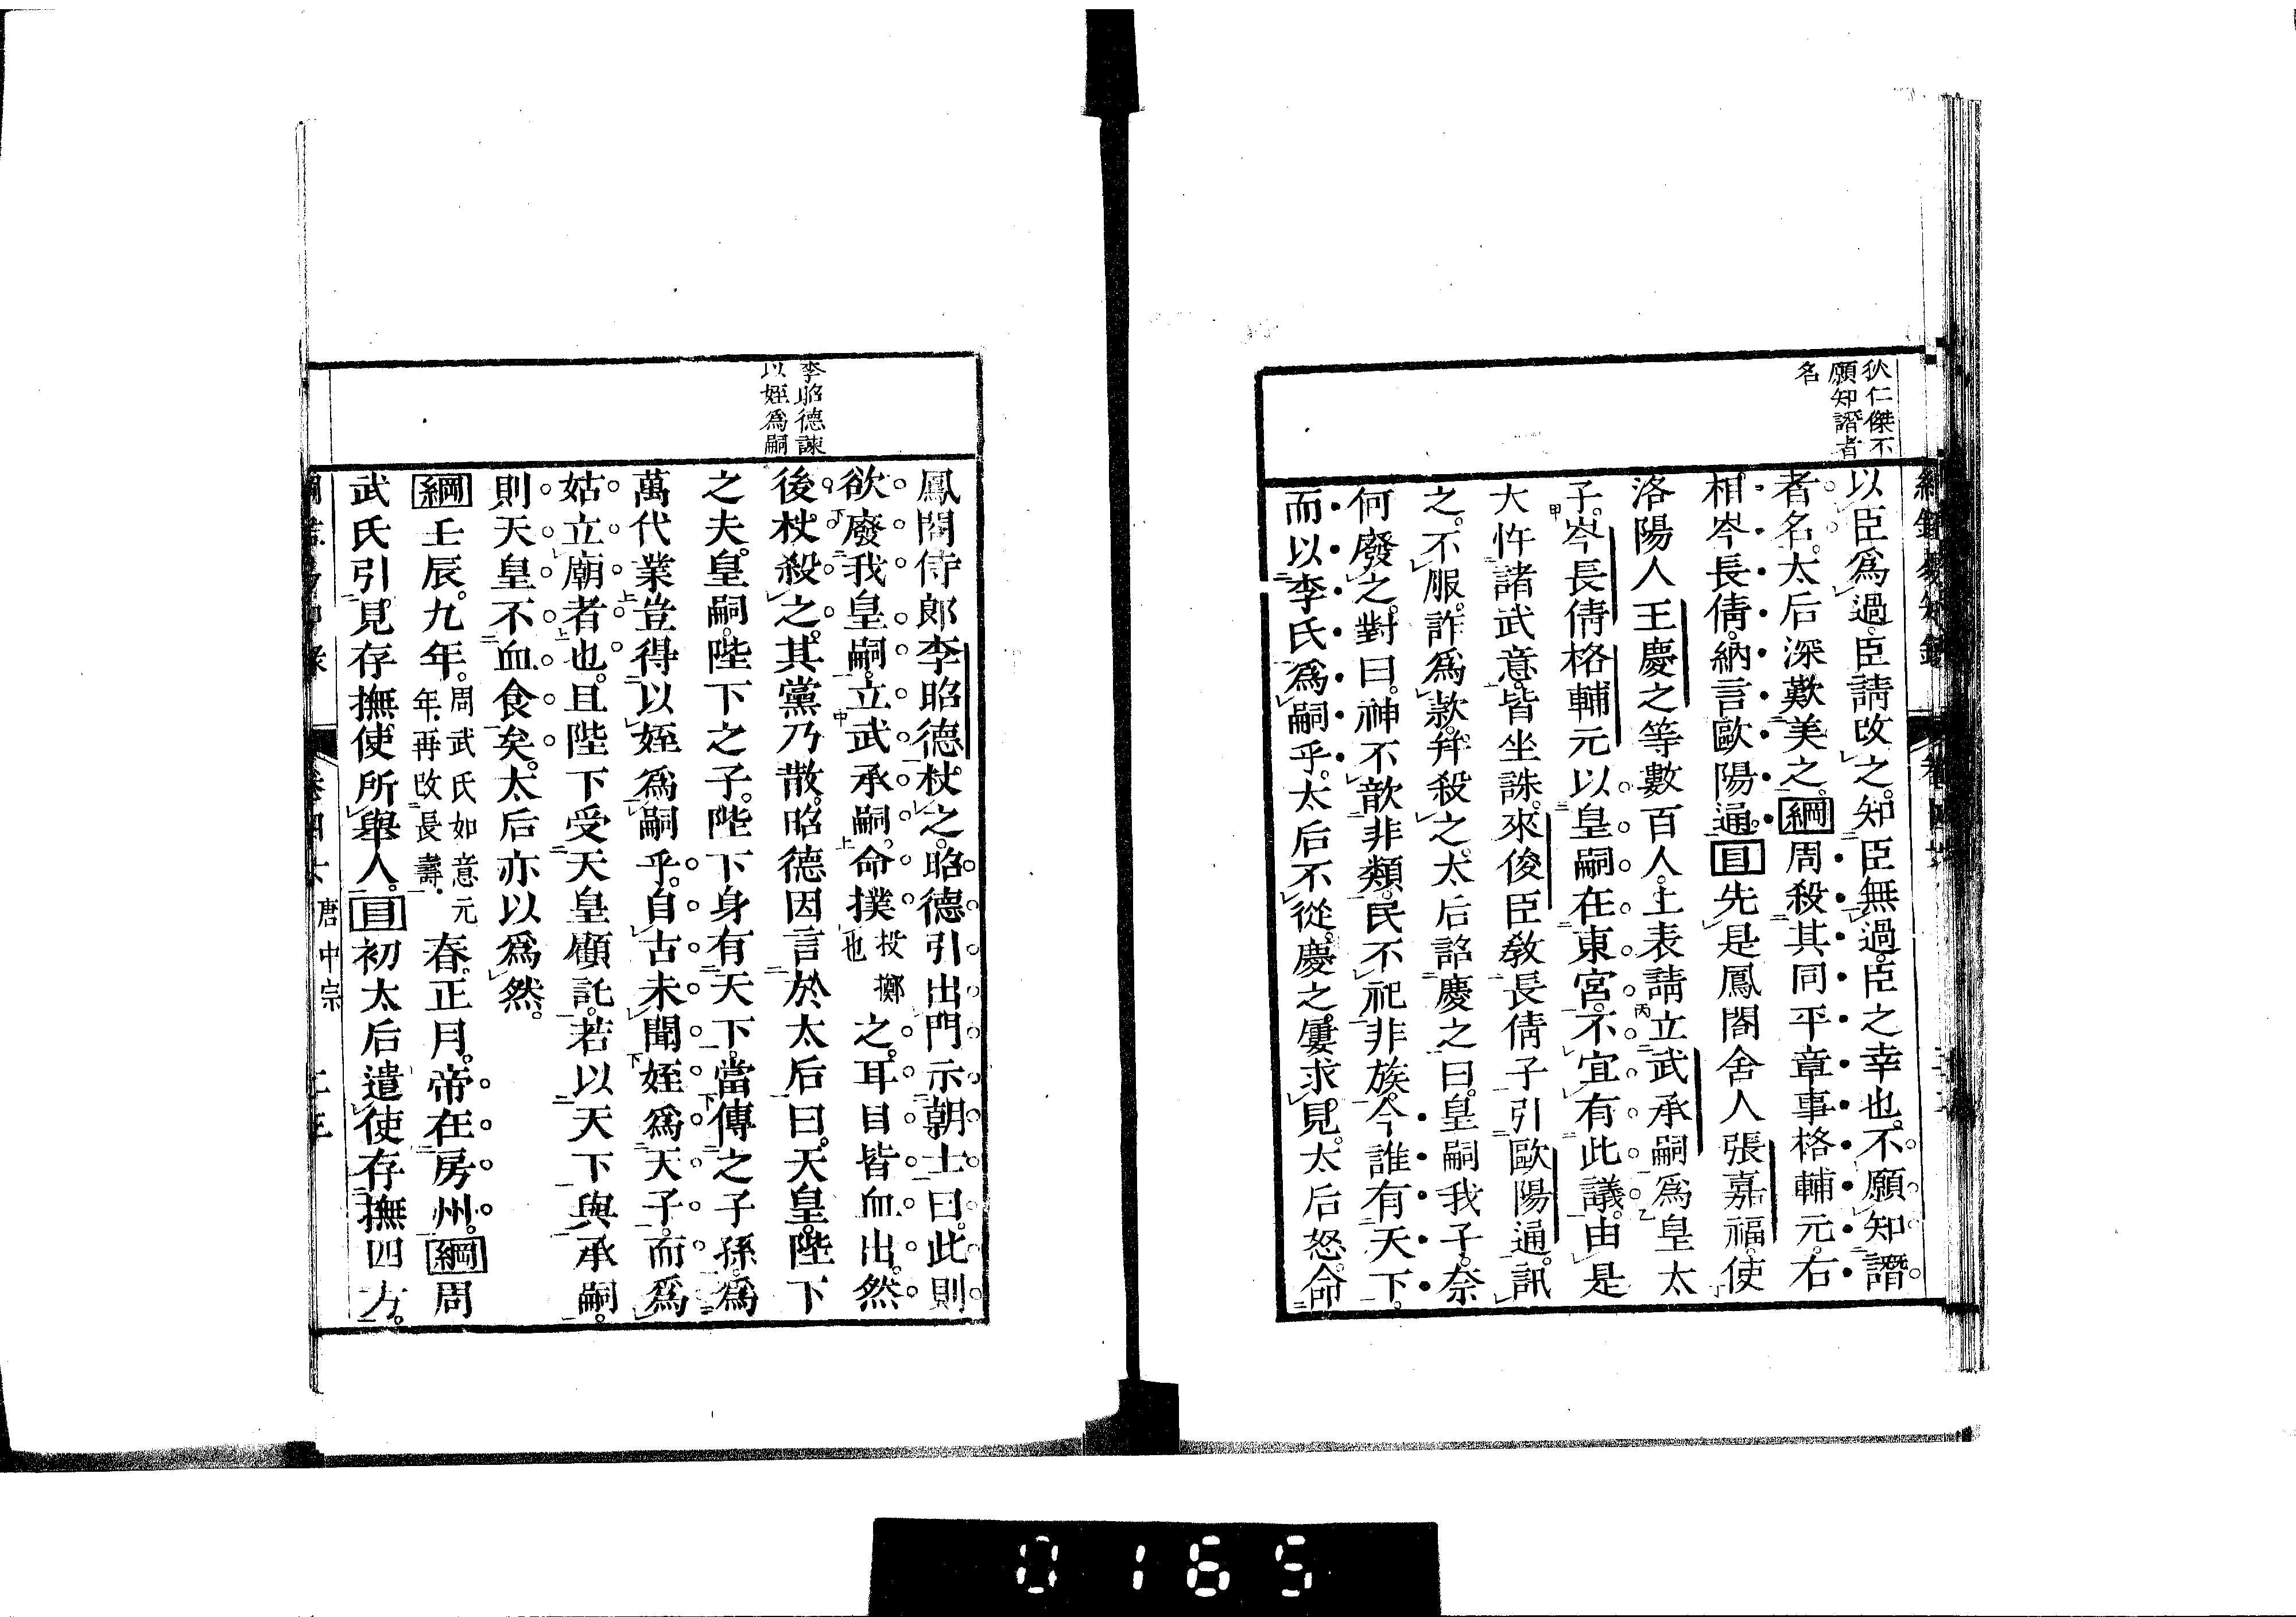 狄仁傑不
願知譖者
名
以臣爲過。臣請改之。知臣無過。臣之幸也。不願知譖
者名。太后深歎美之。綱周殺其同平章事格輔元。右
相岑長倩。納言歐陽通。目先是鳳閣舍人張嘉福。使
洛陽人王慶之等數百人。上表請立武承嗣爲皇太
子。岑長倩格輔元以皇嗣在東宮。不宜有此議。由是
大忤諸武意。皆坐誅。來俊臣教長倩子引歐陽通。訊
之。不服。詐爲款。幷殺之。太后詔慶之曰。皇嗣我子。奈
何廢之。對曰。神不歆非類。民不祀非族。今誰有天下。
而以李氏爲嗣乎。太后不從。慶之屢求見。太后怒。命
李昭德諫
以姪爲嗣
鳳閣侍郎李昭德杖之。昭德引出門示朝士曰。此則
欲廢我皇嗣。立武承嗣。命撲投擲也之。耳目皆血出。然
後杖殺之。其黨乃散。昭德因言於太后曰。天皇。陛下
之夫。皇嗣。陛下之子。陛下身有天下。當傳之子孫。爲
萬代業。豈得以姪爲嗣乎。自古未聞姪爲天子。而爲
姑立廟者也。且陛下受天皇顧託。若以天下與承嗣。
則天皇不血食矣。太后亦以爲然。
綱壬辰。九年。周武氏如意元年。再改長壽。春。正月。帝在房州。綱周
武氏引見存撫使所舉人。目初太后遣使存撫四方。
唐中宗
0165